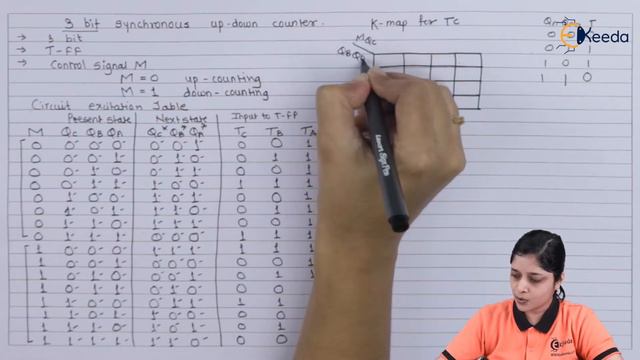 3 bit synchronous up-down counter.
→ 3 bit
→ T-FF
→ Control signal M
M = 0 up-counting
M = 1 down-counting
Circuit excitation Table
Present state Next state Input to T-FF
M QC QB QA QC* QB* QA* TC TB TA
0 0 0 0 0 0 1 0 0 1
0 0 0 1 0 1 0 0 1 1
0 0 1 0 0 1 1 0 0 1
0 0 1 1 1 0 0 1 1 1
0 1 0 0 1 0 1 0 0 1
0 1 0 1 1 1 0 0 1 1
0 1 1 0 1 1 1 0 0 1
0 1 1 1 0 0 0 1 1 1
1 0 0 0 1 1 1 1 1 1
1 0 0 1 0 0 0 0 0 1
1 0 1 0 0 0 1 0 1 1
1 0 1 1 0 1 0 0 0
1 1 0 0 0 1 1 1 1
1 1 0 1 1 0 0 0 0
1 1 1 0 1 0 1 0 1
1 1 1 1 1 1 0 0 0
K-map for TC
MQC
QB
T
0
1
1 0 1
1 1 0
Ekeeda